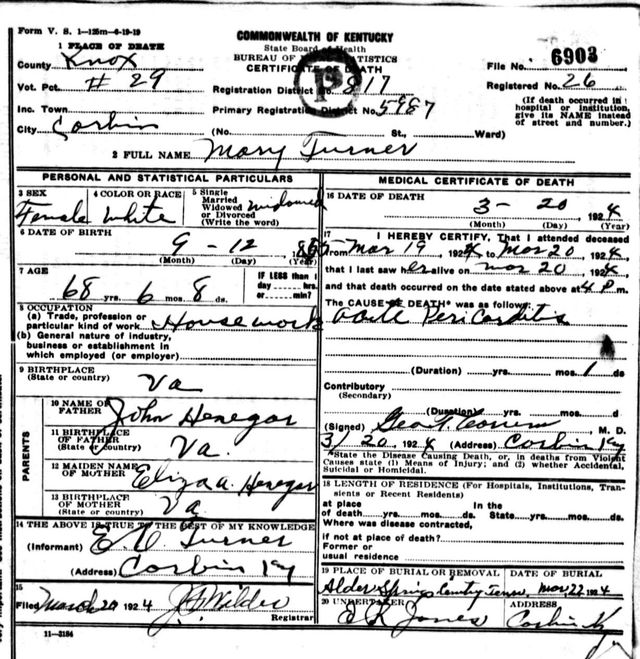 Form V. S. 1—125m—6-19-19
COMMONWEALTH OF KENTUCKY
State Board of Health
BUREAU OF STATISTICS
CERTIFICATE OF DEATH
1 PLACE OF DEATH
County Knox
File No. 6903
Vot. Pct. # 29
Registration District No. 817
Registered No. 26
Inc. Town
Primary Registration District No. 5987
(If death occurred in
hospital or institution,
give its NAME instead
of street and number.)
City Corbin (No. St., Ward)
2 FULL NAME Mary Turner
PERSONAL AND STATISTICAL PARTICULARS
3 SEX
Female
4 COLOR OR RACE
White
5 Single
Married
Widowed
or Divorced
(Write the word)
Widowed
6 DATE OF BIRTH
9 - 12
(Month) (Day) (Year)
7 AGE
68 yrs. 6 mos. 8 ds.
IF LESS than 1
day hrs.
or min.?
8 OCCUPATION
(a) Trade, profession or
particular kind of work Housework
(b) General nature of industry,
business or establishment in
which employed (or employer)
9 BIRTHPLACE
(State or country)
Va
PARENTS
10 NAME OF
FATHER John Henegar
11 BIRTHPLACE
OF FATHER
(State or country) Va.
12 MAIDEN NAME
OF MOTHER Eliza A. Henegar
13 BIRTHPLACE
OF MOTHER Va
(State or country)
14 THE ABOVE IS TRUE TO THE BEST OF MY KNOWLEDGE
(Informant) Turner
(Address) Corbin Ky
15
Filed March 20 1924 Wilder
Registrar
11—3184
MEDICAL CERTIFICATE OF DEATH
16 DATE OF DEATH
3 - 20 , 1924
(Month) (Day) (Year)
17 I HEREBY CERTIFY, That I attended deceased
from Mar 19 1924 to Mar 20, 1924
that I last saw her alive on Mar 20, 1924
and that death occurred on the date stated above at 4 P m.
The CAUSE OF DEATH* was as follows:
Acute Pericarditis
(Duration) yrs. mos. 1 ds.
Contributory
(Secondary)
(Duration) yrs. mos. d
(Signed) M. D.
3/20 1924 (Address) Corbin Ky
*State the Disease Causing Death, or, in deaths from Violent
Causes state (1) Means of Injury; and (2) whether Accidental,
Suicidal or Homicidal.
18 LENGTH OF RESIDENCE (For Hospitals, Institutions, Tran-
sients or Recent Residents)
at place In the
of death yrs. mos. ds. State yrs. mos. ds.
Where was disease contracted,
if not at place of death?
Former or
usual residence
19 PLACE OF BURIAL OR REMOVAL
Alder Springs Tenn
DATE OF BURIAL
Mar 22 1924
20 UNDERTAKER
Jones
ADDRESS
Corbin Ky